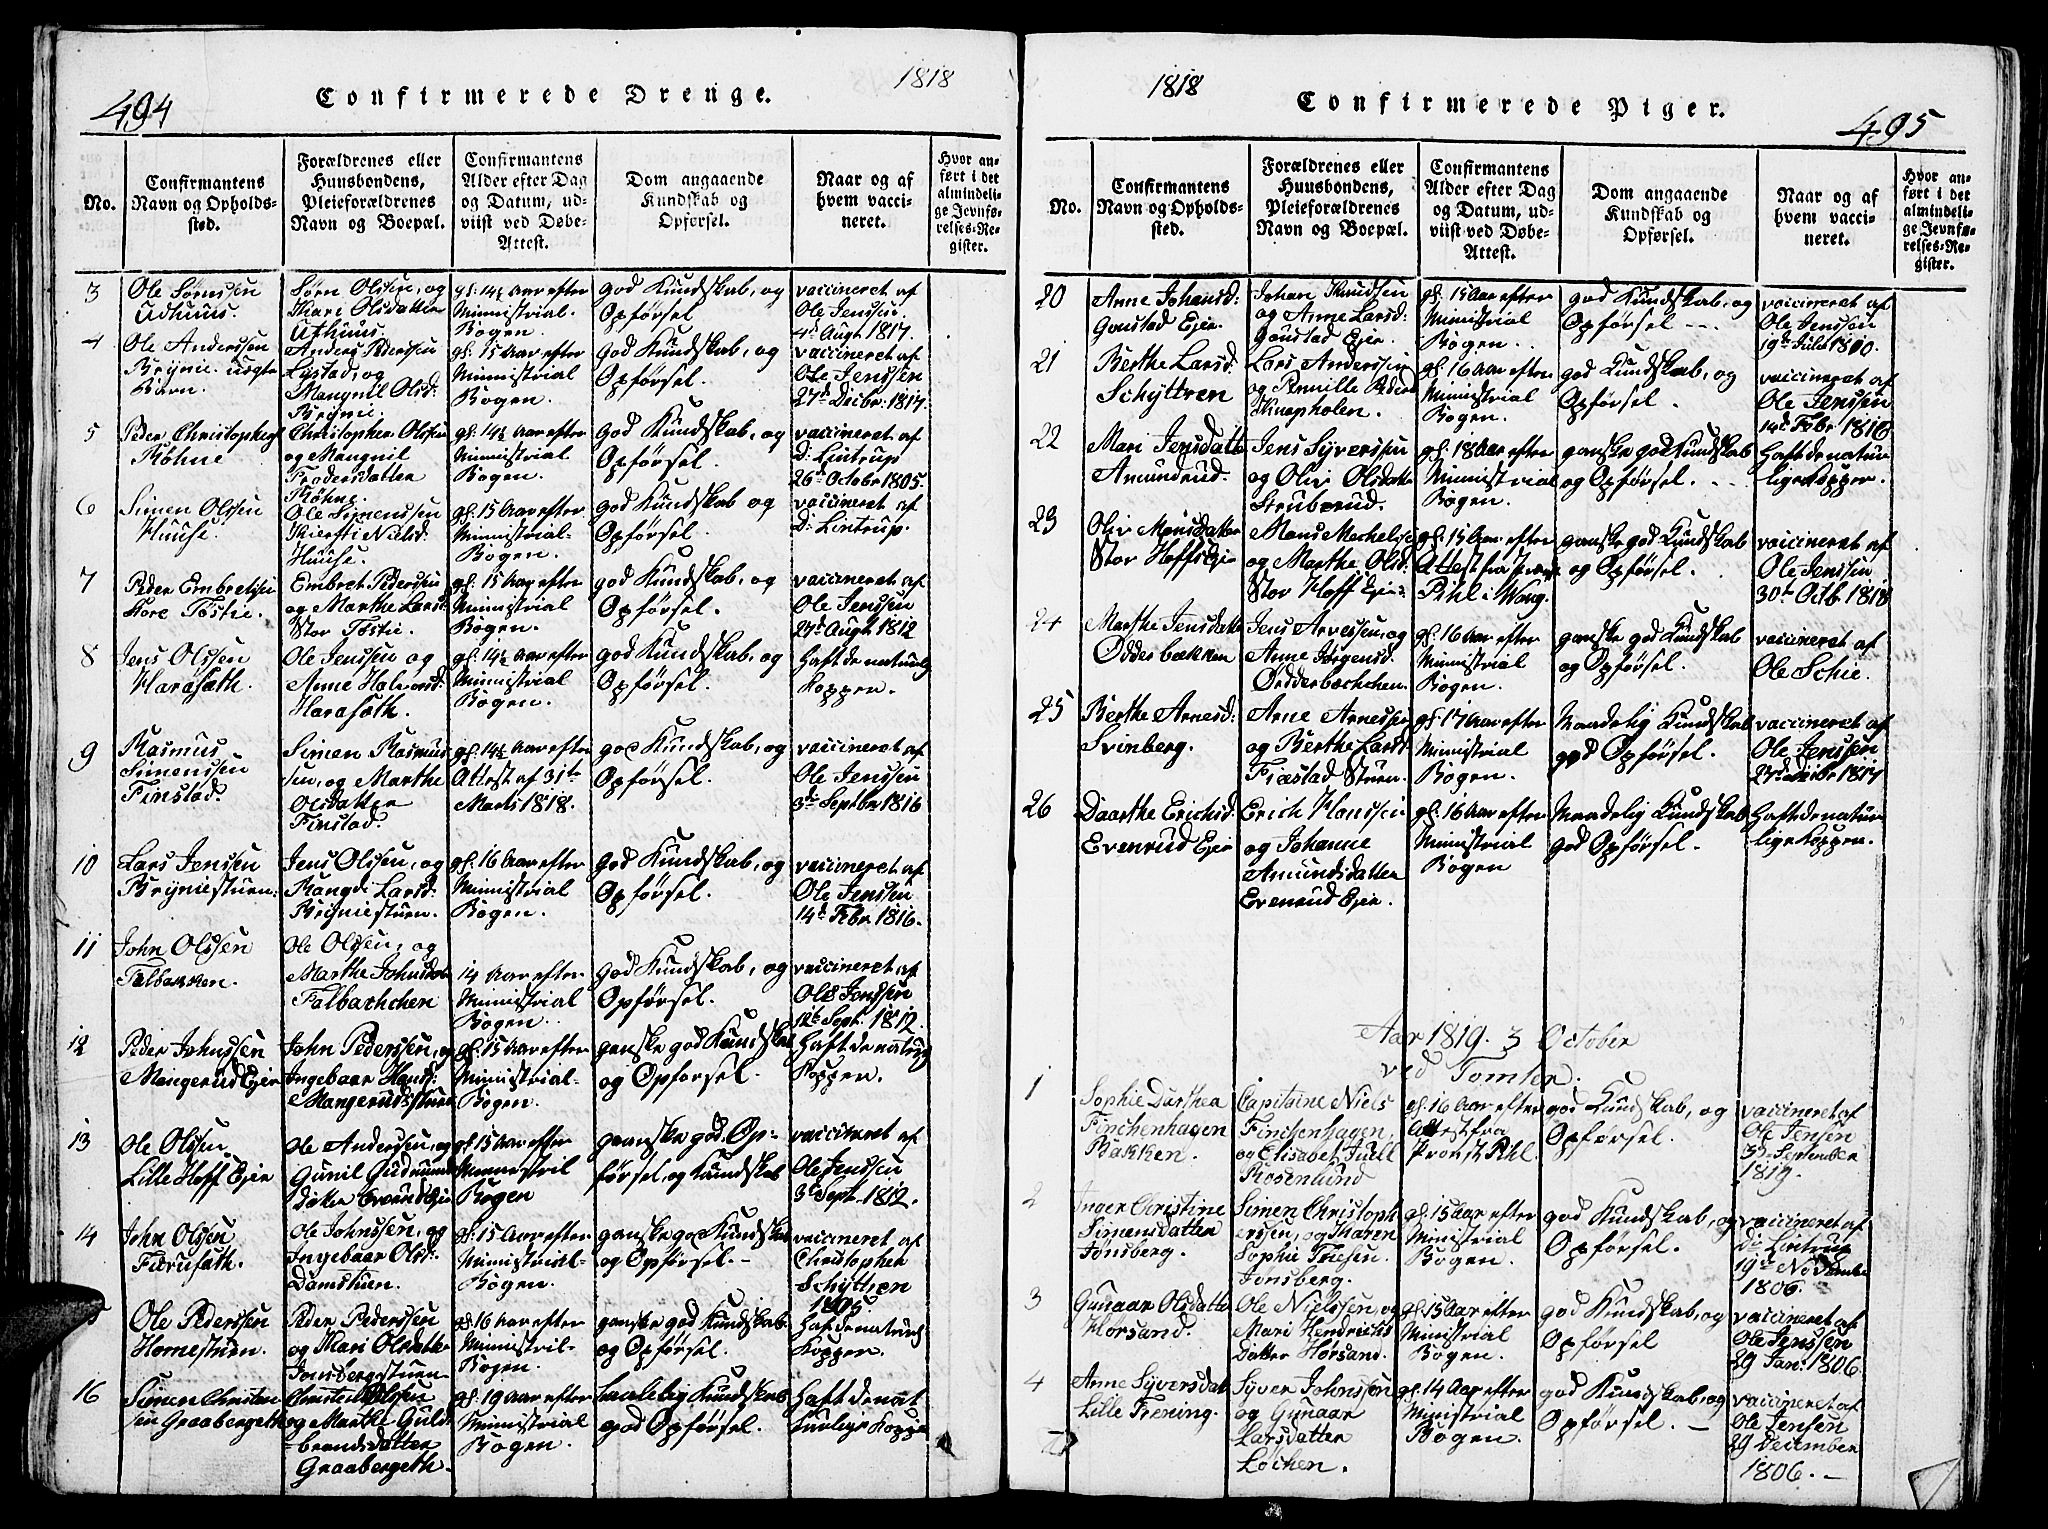 494
Confirmerede Drenge.
1818
No.
Confirmantens
Navn og Opholds-
sted.
Forældrenes eller
Huusbondens,
Pleieforældrenes
Navn og Boepæl.
Confirmantens
Alder efter Dag
og Datum, ud-
viist ved Døbe-
Attest.
Dom angaaende
Kundskab og
Opførsel.
Naar og af
hvem vacci-
neret.
Hvor an-
ført i det
almindeli-
ge Jevnfø-
relses-Re-
gister.
3
Ole Sørnssen
Udhuus.
Sørn Olssen, og
Mari Olsdatter
Uthuus.
gl. 14½ Aar efter
Ministrial
Bogen.
god Kundskab, og
Opførsel
vaccineret af
Ole Jenssen.
4de Augt 1817.
4
Ole Anderssen
Brynie uegte
Barn.
Anders Pederssen
Systad, og
Mangnil Olsd:
Brynie.
gl. 15 Aar efter
Ministrial
Bogen.
god Kundskab, og
Opførsel.
vaccineret af
Ole Jenssen
27de Decbr. 1817.
5
Peder Christophers
Røhne
Christopher Olssen
og Mangnil
Frodersdatter
Røhne.
gl. 14½ Aar efter
Ministrial
Bogen.
god Kundskab, og
Opførsel.
vaccineret af
D: Lintrup
26de Octobr 1805.
6
Simen Olssen
Huuse.
Ole Simenssen
Kiersti Nielsd.
Huuse.
gl. 15 Aar efter
Ministrial-
Bogen.
god Kundskab og
Opførsel.
vaccineret af
D: Lintrup.
7
Peder Embretssen
Tøstie.
Embret Pederssen
og Marthe Larsd.
Stor Tøstie.
gl. 15 Aar efter
Ministrial
Bogen.
god Kundskab, og
Opførsel.
vaccineret af
Ole Jenssen
27de Augt 1812
8
Jens Olssen
Harasæth.
Ole Jenssen og
Anne Halvord:
Harasæth.
gl. 14½ Aar efter
Ministrial
Bogen.
god Kundskab, og
Opførsel.
Haft de naturlig
Kopper.
9
Rasmus
Simenssen
Finstad.
Simen Rasmus
sen, og Marthe
Olsdatter
Finstad.
gl. 14½ Aar efter
Attest af 31te
Marts 1818.
god Kundskab, og
Opførsel.
vaccineret af
Ole Jenssen
3de Septbr 1816
10
Lars Jenssen
Bryniestuen.
Jens Olssen, og
Rangdi Larsd:
Bryniestuen.
gl. 16 Aar efter
Ministrial
Bogen.
god Kundskab, og
Opførsel.
vaccineret af
Ole Jenssen
14de Febr 1816.
11
John Olssen
Falbakken.
Ole Olssen, og
Marthe Johnsdat
Falbachchen
14 Aar efter
Ministrial
Bogen.
god Kundskab, og
Opførsel.
vaccineret af
Ole Jenssen
12te Sept. 1812.
12
Peder Johnssen
Mangerud Ejer
John Pederssen, og
Ingebaar Hansd:
Mangerudstuen
gl. 15 Aar efter
Ministrial-
Bogen.
ganske god Kundskab
og Opførsel.
Haft de naturlig
Kopper.
13
Ole Olssen
Lille Hoff Ejer
Ole Anderssen, og
Gunil Gudmunds
datter
gl. 15 Aar efter
Ministril
Bogen
ganske god Op-
førsel, og Kundskab
vaccineret af
Ole Jenssen
3de Sept. 1812.
14
John Olssen
Furusæth.
Ole Johnssen, og
Ingebaar Olsd:
Damstuen.
gl. 15 Aar efter
Ministrial-
Bogen.
ganske god Kundskab
og Opførsel. -
vaccineret af
Christopher
Schyttren
1805
15
Ole Pederssen
Hornestuen.
Peder Pederssen
og Mari Olsdatter
Jonsbergstuen
gl. 16 Aar efter
Ministril-
Bogen.
ganske god Kundskab
og Opførsel.
Haft de naturlig
Kopper.
16
Simen Christen
sen Graabergeth
Christen Olssen
og Marthe Guld
brandsdatter
Graabergeth.
gl. 19 Aar efter
Ministrial
Bogen.
Taalelig Kundskab
god Opførsel.
Haft de nat-
urlige Koppe
1818
Confirmerede Piger.
495
No.
Confirmantens
Navn og Opholds-
sted.
Forældrenes eller
Huusbondens,
Pleieforældrenes
Navn og Boepæl.
Confirmantens
Alder efter Dag
og Datum, ud-
viist ved Døbe-
Attest.
Dom angaaende
Kundskab og
Opførsel.
Naar og af
hvem vacci-
neret.
Hvor an-
ført i det
almindeli-
ge Jevnfø-
relses-Re-
gister.
20
Anne Johansd:
Goustad Ejer.
Johan Knudsen
og Anne Larsd:
Goustad Ejer.
gl. 15 Aar efter
Ministrial
Bogen.
god Kundskab, og
Opførsel ---
vaccineret af
Ole Jenssen
19de Julii 1810.
21
Berthe Larsd.
Schyttren
Lars Anderssen
og Pernille Peder
Knapholen.
gl. 16 Aar efter
Ministrial
Bogen.
god Kundskab, og
Opførsel.
vaccineret af
Ole Jenssen
14de Febr 1816
22
Mari Jensdatte
Amundrud.
Jens Syverssen
og Oliv Olsdatte
Struberud.
gl. 18 Aar efter
Ministrial
Bogen.
ganske god Kundskab
og Opførsel. --
Haft de natur
lige Kopper.
23
Oliv Monsdatter
Stor Hoffs Ejer
Mons Mechelsen
og Marthe Olsd.
Stor Hoff Ejer.
gl. 15 Aar efter
Attest fra
Pihl i Wang.
ganske god Kundskab
og Opførsel.
vaccineret af
Ole Jenssen
30te Octb. 1818
24
Marthe Jensdatte
Oddesbækken
Jens Arvessen, og
Anne Jørgensd.
Ødderbæchchen.
gl. 16 Aar efter
Ministrial
Bogen.
ganske god Kundskab
og Opførsel.
vaccineret af
Ole Schie.
25
Berthe Arnesd:
Svinberg.
Arne Arnessen
og Berthe Larsd.
Fiæstad Stuen.
gl. 17 Aar efter
Ministrial
Bogen.
Maadelig Kundskab
god Opførsel.
vaccineret af
Ole Jenssen
27de Decbr 1817
26
Daarthe Erichsd.
Evenrud Ejer
Erich Hanssen
og Johanne
Amundsdatter
Evenrud Ejer.
gl. 16 Aar efter
Ministrial
Bogen
Maadelig Kundskab
god Opførsel.
Haft de natur
lige Kopper.
Aar 1819. 3 October
ved Tomter.
1
Sophie Dorthea
Finchenhagen
Bakken.
Capitaine Niels
Finchenhagen,
og Elisabet Juell
Rosenlund
gl. 16 Aar efter
Attest fra
Provst Pihl.
god Kundskab, og
Opførsel.
vaccineret af
Ole Jensen
3de September
1819.
2
Inger Christine
Simensdatter
Jonsberg.
Simen Christoph
erssen, og Karen
Sophie
Jonsberg.
gl. 15 Aar efter
Ministrial
Bogen.
god Kundskab, og
Opførsel.
vaccineret af
D: Lintrup
19de Novembr
1806.
3
Gunaar Olsdatte
Hørsand.
Ole Nielssen, og
Mari Hendrichs
datter Hørsand.
gl. 15 Aar efter
Ministrial
Bogen.
god Kundskab, og
Opførsel
vaccineret af
Ole Jenssen
29 Jan: 1806.
4
Anne Syversdat
Lille Frening.
Syver Johnssen
og Gunaar
Larsdatter
Løchen.
gl. 14 Aar efter
Ministrial
Bogen.
god Kundskab, og
Opførsel. -
vaccineret af
Ole Jensen
29 December
1806. -